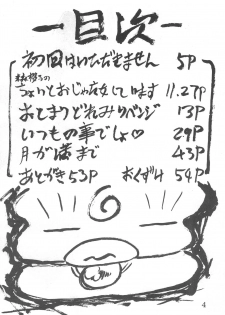 一目次一
初回はいただきません 5P
ちょいとおじゃましています 11.27P
おとまりどれみリベンジ 13P
いつもの事でしょ♡ 29P
月が満まで 43P
あとがき 53P おくづけ 54P
4